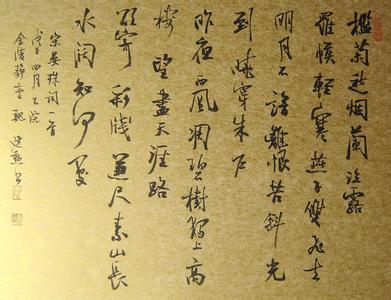 檻菊愁烟蘭泣露
羅幙輕寒燕子雙飛去
明月不諳離恨苦斜光
到曉穿朱户
昨夜西風凋碧樹獨上高
樓望盡天涯路
欲寄彩牋兼尺素山長
水闊知何處
宋晏殊詞一首
四月
金陵靜